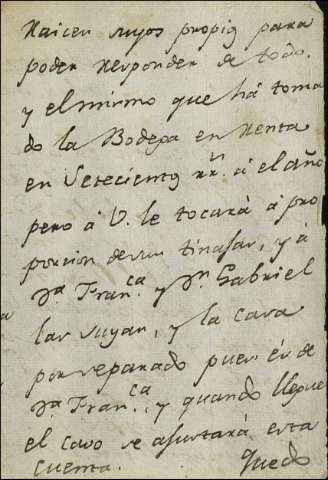 Raicen suyos propios para
poder responder de todo.
y el mismo que há toma
do la Bodega en Renta
en Setecientos rr.ˢ á el año
pero á V. le tocará á pro
porcion de sus tinajas, y á
D.ª Fran.ᶜᵃ y D.ⁿ Gabriel
las suyas, y la casa
por separado pues es de
D.ª Fran.ᶜᵃ, y quando llegue
el caso se ajustará esta
cuenta. Quedo